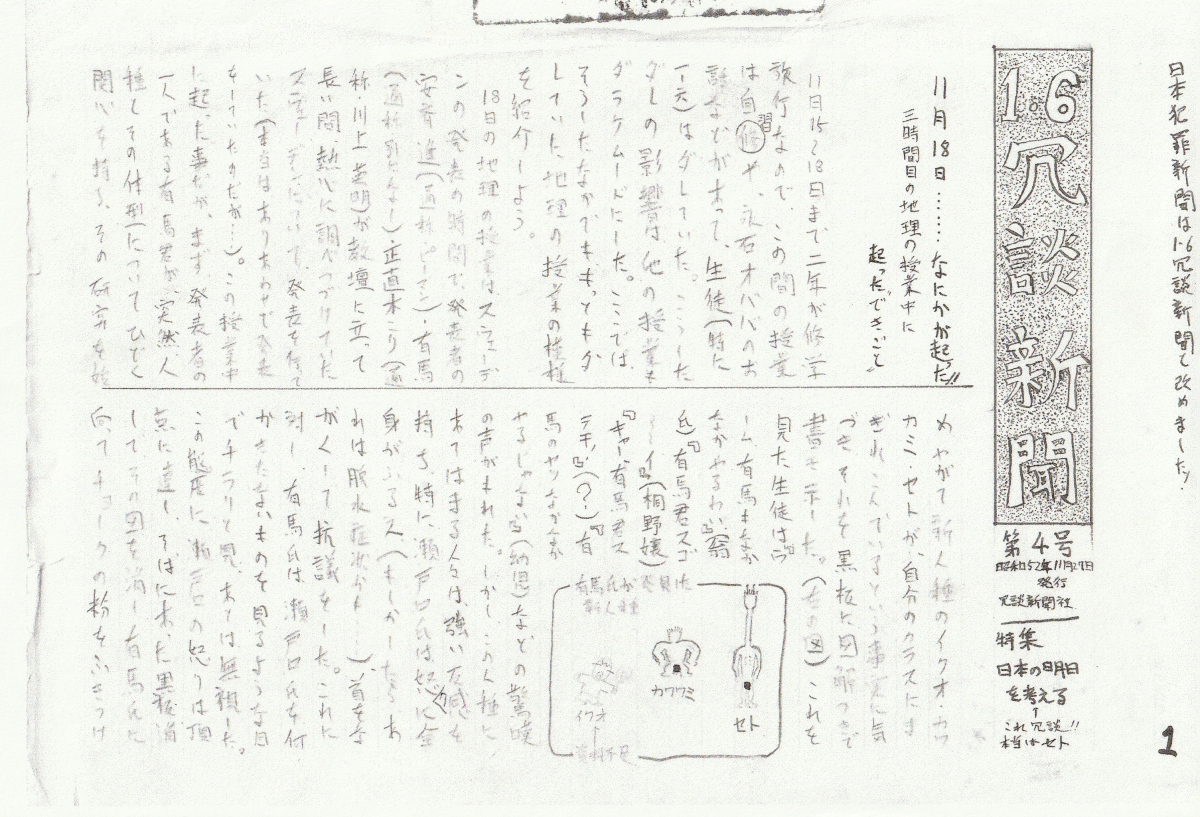 日本犯罪新聞は1・6冗談新聞と改めましたッ!
1の6冗談新聞
第4号
昭和52年11月27日
発行
冗談新聞社
特集
日本の明日
を考える
↑
これ冗談!!
本当はセト
1
11月18日……なにかが起った!!
三時間目の地理の授業中に
起った"できごと"
11日15~18日まで二年が修学
旅行なので、この間の授業
は自修習や、永石オババのお
話などがあって、生徒(特に
一六)はダレていた。こうした
ダレの影響は、他の授業も
ダラケムードにした。ここでは、
そうしたなかでも、もっともダ
していた、地理の授業の模様
を紹介しよう。
18日の地理の授業はスウェーデ
ンの発表の時間で、発表者の
安斉進(通称ピーマン)・有馬
正直木こり(通
称・川上英明)が教壇に立って
長い間、熱心に調べつづけていた
スウェーデンについて、発表を行って
いた(本当はありあわせで発表
をしていたのだが…)。この授業中
に起った事だが、まず発表者の
一人である有馬君が、突然、人
種とその体型についてひどく
関心を持ち、その研究を始
め、やがて新人種のイクオ・カワ
カミ・セトが、自分のクラスにま
ぎれこんでいるという事実に気
づき、それを黒板に図解つきで
書き示した。(左の図)これを
見た生徒は『ウ
ーム、有馬もなか
なかやるわい』(翁
氏)『有馬君スゴ
~イ』(桐野嬢)
『キャー、有馬君ス
テキ』(?)『有
馬のヤツなかなか
やるじゃない』(幼児)などの驚嘆
の声がもれた。しかし、この人種に
あてはまる人々は、強い反感を
持ち、特に、瀬戸口氏は怒りに全
身がふるえ(もしかしたらあ
れは脱水症状かも…)、首をな
がくして抗議をした。これに
対し、有馬氏は、瀬戸口氏を何
かきたないものを見るような目
でチラリと見、あとは無視した。
この態度に、瀬戸口の怒りは頂
点に達し、そばにあった黒板消
しでその図を消し、有馬氏に
向ってチョークの粉をふきつけ
有馬氏が発見した
新人種
セト
カワカミ
イクオ
資料不足